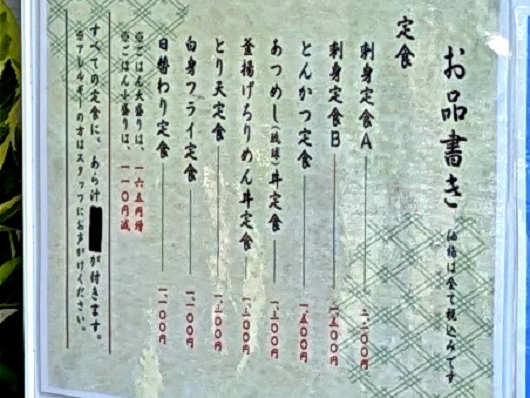 お品書き 価格は全て税込みです
定食
刺身定食A 二、二〇〇円
刺身定食B 一、五〇〇円
とんかつ定食 一、五〇〇円
あつめし(琉球)丼定食 一、三〇〇円
釜揚げちりめん丼定食 一、三〇〇円
とり天定食 一、三〇〇円
白身フライ定食 一、一〇〇円
日替わり定食 一、一〇〇円
※ごはん大盛りは、一六五円増
※ごはん小盛りは、一一〇円減
すべての定食に、あら汁 が付きます。
※アレルギーの方はスタッフにお声がけください。